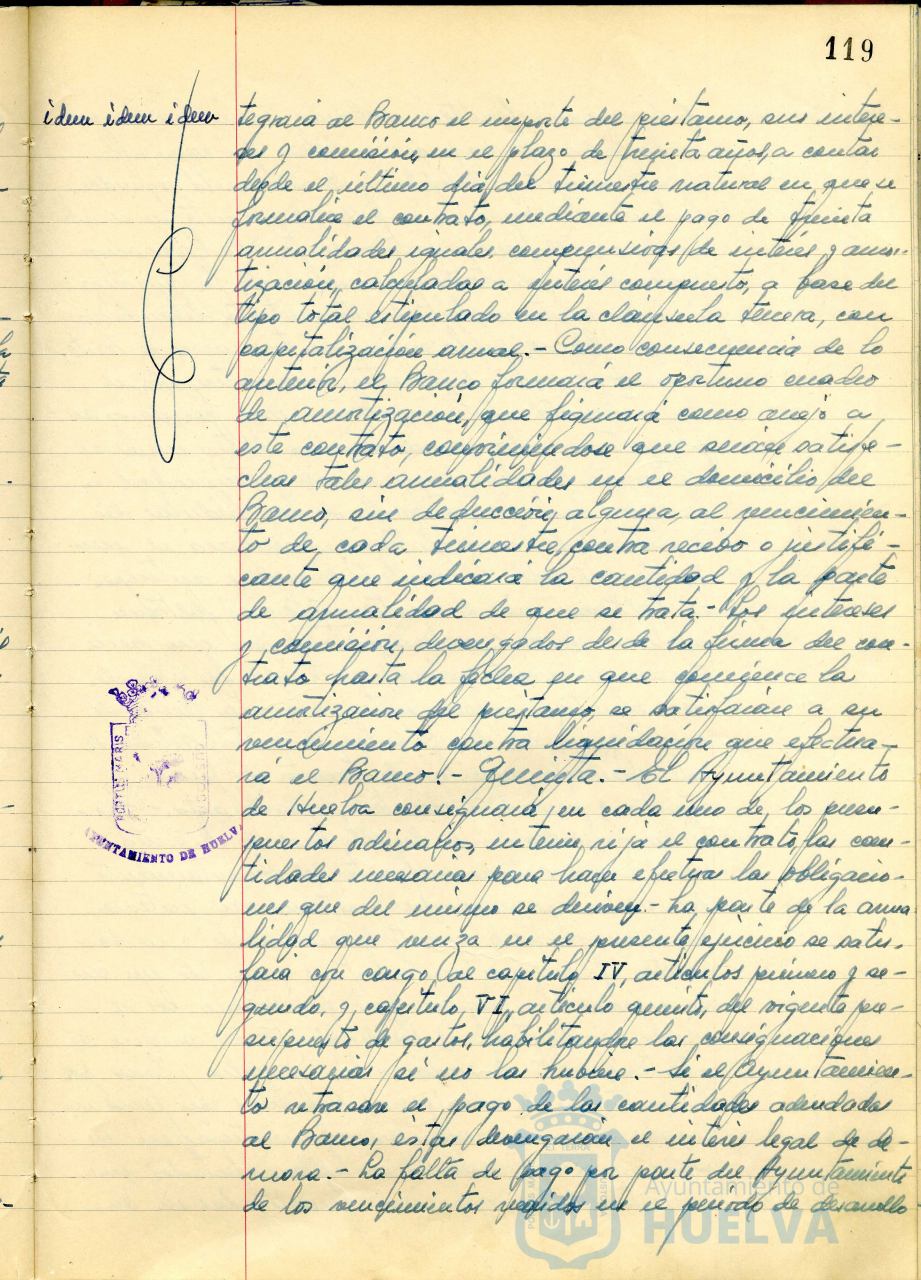 119
idem idem idem
tegrará al Banco el importe del préstamo, sus intere-
ses y comisión, en el plazo de treinta años, a contar
desde el último día del trimestre natural en que se
formalice el contrato, mediante el pago de treinta
anualidades iguales, comprensivas de interés y amor-
tización, calculadas a interés compuesto, a base del
tipo total estipulado en la cláusula tercera, con
capitalización anual.- Como consecuencia de lo
anterior, el Banco formará el oportuno cuadro
de amortización, que figurará como anejo a
este contrato, conviniéndose que serán satisfe-
chas tales anualidades en el domicilio del
Banco, sin deducción alguna, al vencimien-
to de cada trimestre, contra recibo o justifi-
cante que indicará la cantidad y la parte
de anualidad de que se trata.- Los intereses
y comisión, devengados desde la firma del con-
trato hasta la fecha en que comience la
amortización del préstamo, se satisfarán a su
vencimiento contra liquidación que efectua-
rá el Banco.- Quinta.- El Ayuntamiento
de Huelva consignará en cada uno de los presu-
puestos ordinarios, interin rija el contrato, las can-
tidades necesarias para hacer efectivas las obligacio-
nes que del mismo se deriven.- La parte de la anua-
lidad que venza en el presente ejercicio se satis-
fará con cargo al capítulo IV, artículos primero y se-
gundo, y capítulo VI, artículo quinto, del vigente pre-
supuesto de gastos, habilitándose las consignaciones
necesarias si no las hubiere.- Si el Ayuntamien-
to retrasare el pago de las cantidades adeudadas
al Banco, éstas devengarán el interés legal de de-
mora.- La falta de pago por parte del Ayuntamiento
de los vencimientos en el período de desarrollo
PORTUS MARIS
AYUNTAMIENTO DE HUELVA
Ayuntamiento de
HUELVA